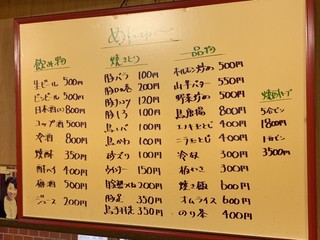 めにゅー
飲み物
生ビール 500円
ビンビール 500円
日本酒(1) 800円
コップ酒 500円
冷酒 800円
焼酎 350円
酎ハイ 400円
梅酒 500円
ジュース 200円
焼とり
豚バラ 100円
200円
120円
100円
鳥レバ 100円
鳥かわ 100円
砂ズリ 100円
ウインナー 150円
200円
豚足 350円
鳥手羽 350円
一品物
ホルモン炒め 500円
山芋バター 550円
野菜炒め 500円
鳥唐揚 800円
エノキとじ 400円
ニラとじ 400円
冷奴 300円
400円
焼き飯 600円
オムライス 600円
のり茶 400円
焼酎キープ
5合ビン
1800円
1升ビン
3500円